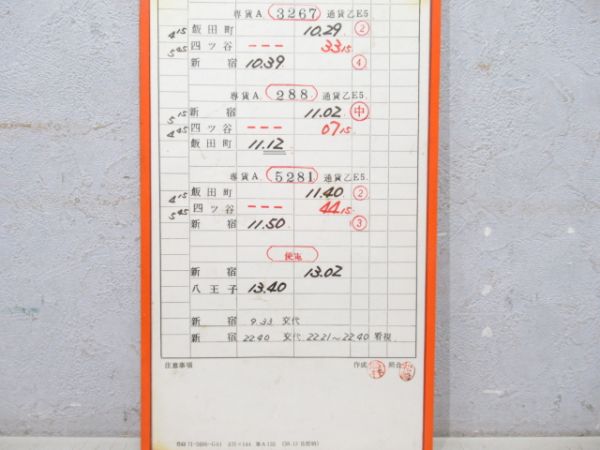 専貨A 3267 通貨乙E5
4 15 飯田町 10.29 ②
5 45 四ツ谷 --- 33 15
新宿 10.39 ④
専貨A 288 通貨乙E5.
5 15 新宿 11.02 中
4 45 四ツ谷 --- 07 15
飯田町 11.12
専貨A 5281 通貨乙E5.
4 15 飯田町 11.40 ②
5 45 四ツ谷 --- 44 15
新宿 11.50 ③
便電
新宿 13.02
八王子 13.40
新宿 9.33 交代
新宿 22.40 交代 22.21〜22.40 看視
注意事項 作成 照合